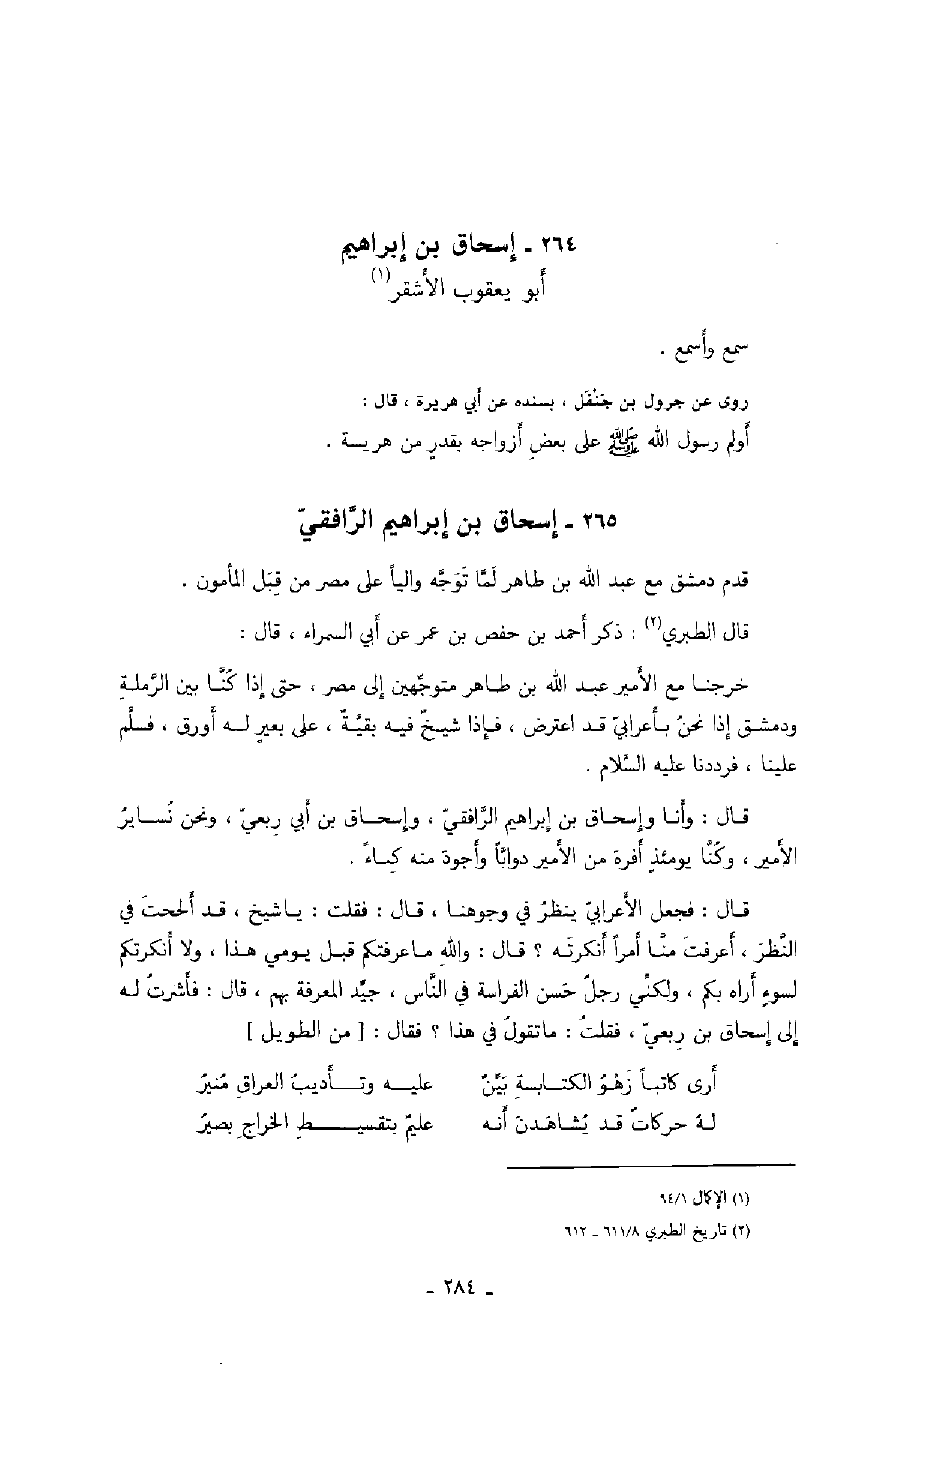 ٢٦٤ ـ إسحاق بن إبراهيم
أبو يعقوب الأشقر(١)
سمع وأسمع .
روى عن جرول بن جَنْفَل ، بسنده عن أبي هريرة ، قال :
أولم رسول الله ﷺ على بعضِ أزواجه بقدرٍ من هريسة .
٢٦٥ ـ إسحاق بن إبراهيم الرَّافقيّ
قدم دمشق مع عبد الله بن طاهر لَمَّا تَوَجَّه والياً على مصر من قِبَل المأمون .
قال الطبري(٢) : ذكر أحمد بن حفص بن عمر عن أبي السمراء ، قال :
خرجنا مع الأمير عبد الله بن طاهر متوجّهين إلى مصر ، حتى إذا كنَّا بين الرَّملةِ
ودمشق إذا نحنُ بأعرابيّ قد اعترض ، فإذا شيخٌ فيه بقيَّةٌ ، على بعيرٍ له أورق ، فسلَّم
علينا ، فرددنا عليه السَّلام .
قال : وأنا وإسحاق بن إبراهيم الرَّافقيّ ، وإسحاق بن أبي ربعيّ ، ونحن نُسايرُ
الأمير ، وكنَّا يومئذٍ أفرهَ من الأمير دوابّاً وأجودَ منه كِساءً .
قال : فجعل الأعرابيّ ينظرُ في وجوهنا ، قال : فقلت : ياشيخ ، قد ألححتَ في
النَّظرَ ، أعرفتَ منَّا أمراً أنكرتَه ؟ قال : واللهِ ماعرفتكم قبل يومي هذا ، ولا أنكرتكم
لسوءٍ أراه بكم ، ولكنِّي رجلٌ حَسن الفراسة في النَّاس ، جيِّد المعرفة بهم ، قال : فأشرتُ له
إلى إسحاق بن ربعيّ ، فقلتُ : ماتقولُ في هذا ؟ فقال : [ من الطويل ]
أرى كاتباً زَهْوُ الكتابةِ بَيِّنٌ عليه وتأديبُ العراقِ مُنيرُ
لهُ حركاتٌ قد يُشاهَدنَ أنه عليمٌ بتقسيطِ الخراجِ بصيرُ
(١) الإكمال ٦٤/١
(٢) تاريخ الطبري ٦١١/٨ ـ ٦١٢
ـ ٢٨٤ ـ